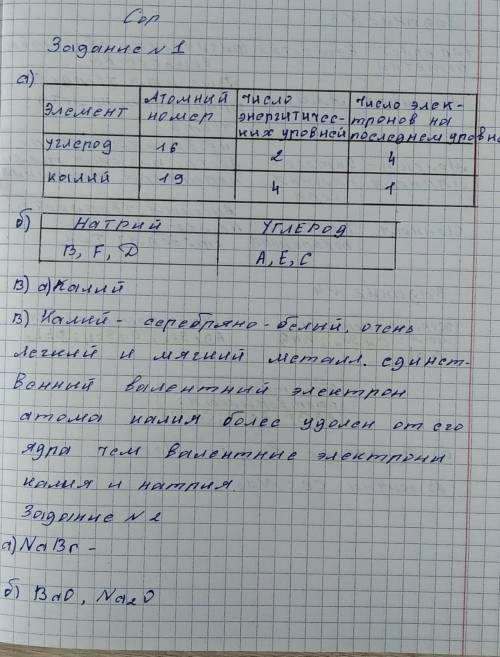 Сор
Задание №1
а)
Элемент | Атомный номер | Число энергитичес-ких уровней | Число элек-тронов на последнем уровне
углерод | 16 | 2 | 4
калий | 19 | 4 | 1
б) Натрий | Углерод
B, F, D | A, E, C
в) а) Калий
в) Калий - серебряно-белый, очень
легкий и мягкий металл. единст-
венный валентный электрон
атома калия более удолен от его
ядра чем валентные электронн
калия и натрия.
Задание №2
а) NaBr -
б) BaO, Na₂O